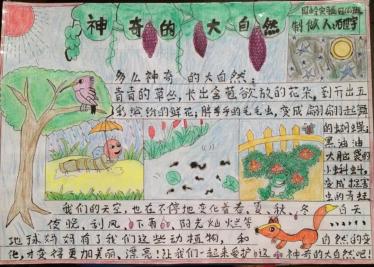 神奇的大自然
多么神奇的大自然,
青青的草丛,长出含苞欲放的花朵,到开出五
彩缤纷的鲜花,胖乎乎的毛毛虫,变成翩翩起舞
的蝴蝶;
黑油油
大脑袋的
小蝌蚪,
变成捉害
虫的青蛙
我们的天空,也在不停地变化着春、夏、秋、冬、白天
傍晚,刮风、下雨的、阳光灿烂
地球妈妈有了我们这些动植物,和自然的变
化,才变得更加美丽,漂亮!让我们一起来爱护这神奇的大自然吧!